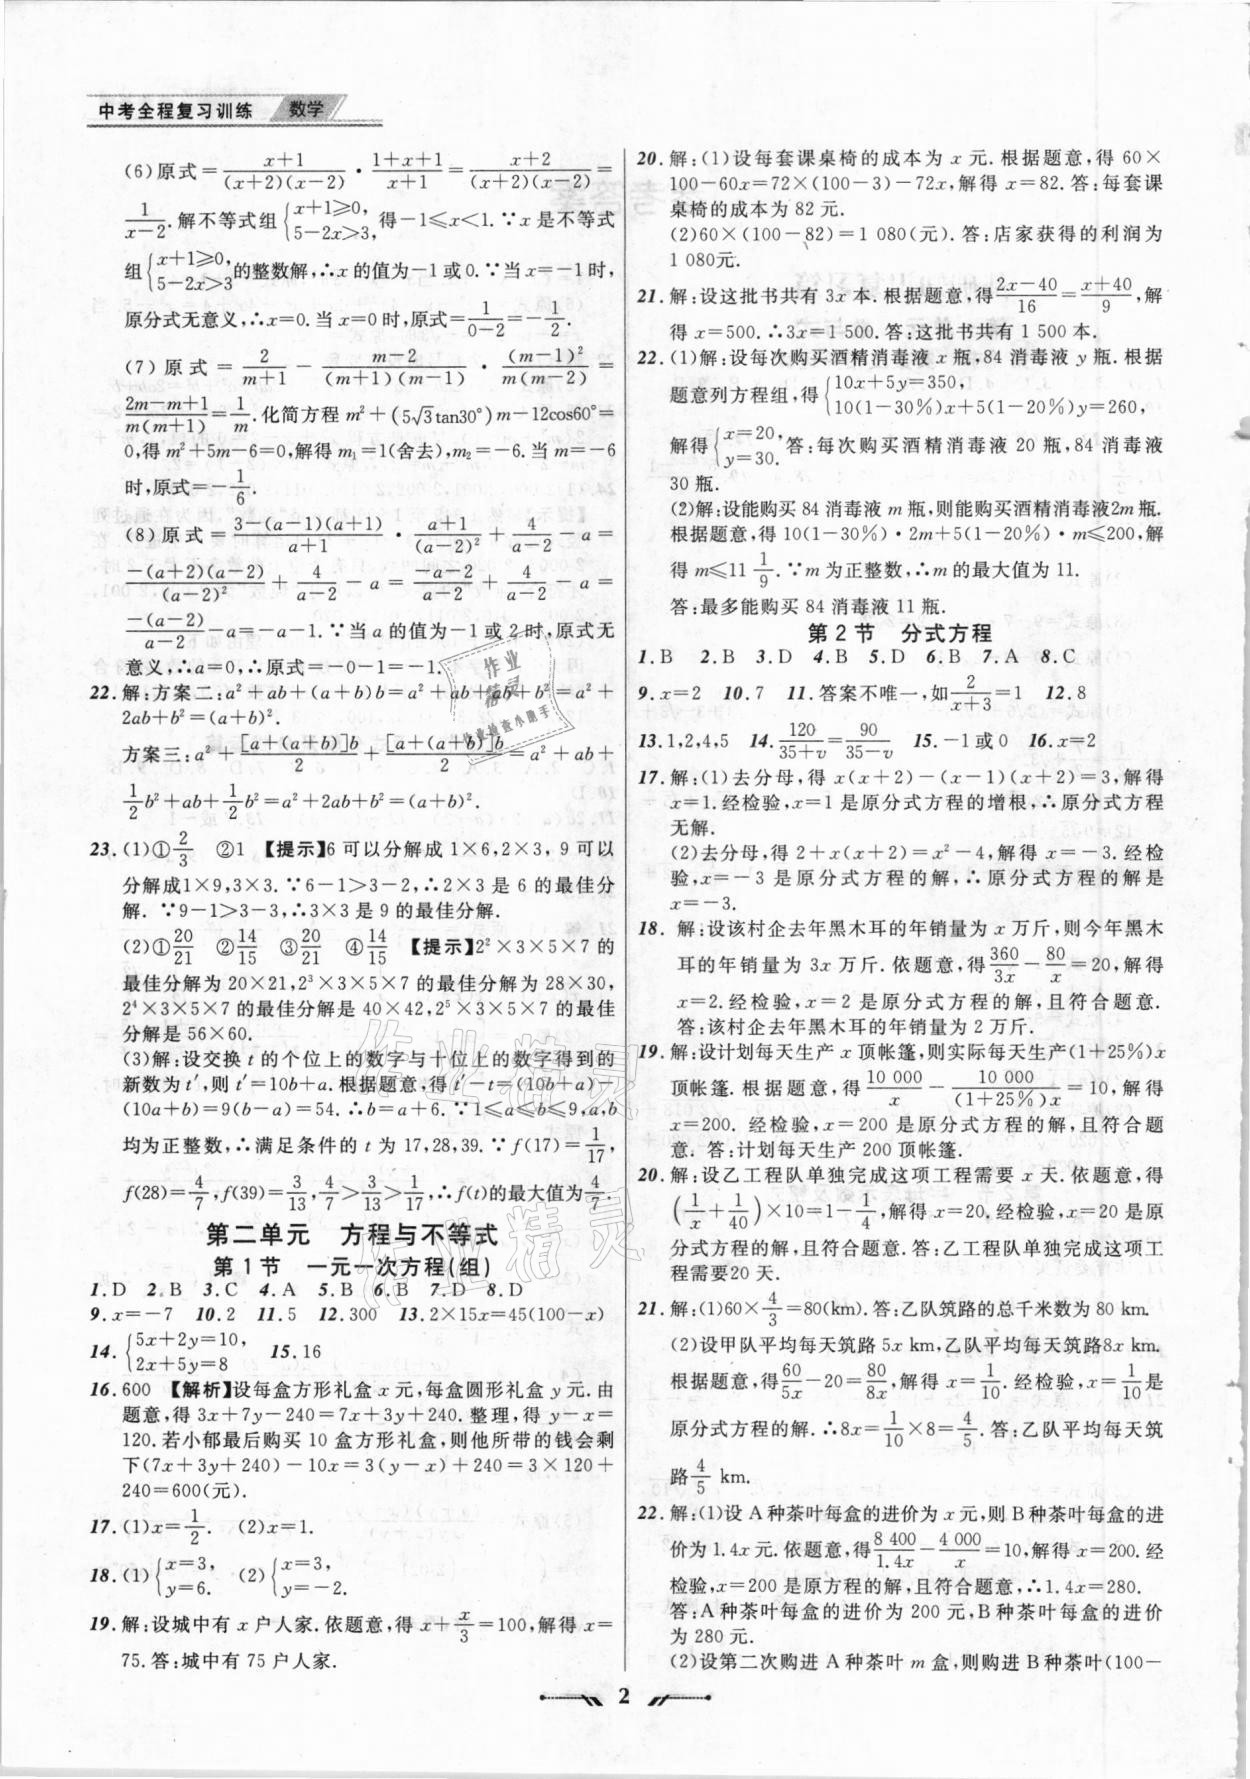 中考全程复习训练 数学
(6)原式=\frac{x+1}{(x+2)(x-2)}·\frac{1+x+1}{x+1}=\frac{x+2}{(x+2)(x-2)}=
\frac{1}{x-2}.解不等式组{x+1≥0, 5-2x>3,得-1≤x<1.∵x是不等式
组{x+1≥0, 5-2x>3的整数解,∴x的值为-1或0.∵当x=-1时,
原分式无意义,∴x=0.当x=0时,原式=\frac{1}{0-2}=-\frac{1}{2}.
(7)原式=\frac{2}{m+1}-\frac{m-2}{(m+1)(m-1)}·\frac{(m-1)²}{m-2}=
\frac{2m-m+1}{m(m+1)}=\frac{1}{m}.化简方程m²+(5√3tan30°)m-12cos60°=
0,得m²+5m-6=0,解得m₁=1(舍去),m₂=-6.当m=-6
时,原式=-\frac{1}{6}.
(8)原式=\frac{3-(a-1)(a+1)}{a+1}·\frac{a+1}{(a-2)²}+\frac{4}{a-2}-a=
\frac{-(a+2)(a-2)}{(a-2)²}+\frac{4}{a-2}-a=\frac{-a-2}{a-2}+\frac{4}{a-2}-a=
\frac{-(a-2)}{a-2}-a=-a-1.∵当a的值为-1或2时,原式无
意义,∴a=0,∴原式=-0-1=-1.
22.解:方案二:a²+ab+(a+b)b=a²+ab+ab+b²=a²+
2ab+b²=(a+b)².
方案三:a²+\frac{[a+(a+b)]b}{2}+\frac{[a+(a+b)]b}{2}=a²+ab+
\frac{1}{2}b²+ab+\frac{1}{2}b²=a²+2ab+b²=(a+b)².
23.(1)①\frac{2}{3} ②1 【提示】6可以分解成1×6,2×3,9可以
分解成1×9,3×3.∵6-1>3-2,∴2×3是6的最佳分
解.∵9-1>3-3,∴3×3是9的最佳分解.
(2)①\frac{20}{21} ②\frac{14}{15} ③\frac{20}{21} ④\frac{14}{15} 【提示】2²×3×5×7的
最佳分解为20×21,2³×3×5×7的最佳分解为28×30,
2⁴×3×5×7的最佳分解是40×42,2⁵×3×5×7的最佳
分解是56×60.
(3)解:设交换t的个位上的数字与十位上的数字得到的
新数为t′,则t′=10b+a.根据题意,得t′-t=(10b+a)-
(10a+b)=9(b-a)=54.∴b=a+6.∵1≤a≤b≤9,a,b
均为正整数,∴满足条件的t为17,28,39.∵f(17)=\frac{1}{17},
f(28)=\frac{4}{7},f(39)=\frac{3}{13},\frac{4}{7}>\frac{3}{13}>\frac{1}{17},∴f(t)的最大值为\frac{4}{7}.
第二单元 方程与不等式
第1节 一元一次方程(组)
1.D 2.B 3.C 4.A 5.B 6.B 7.D 8.D
9.x=-7 10.2 11.5 12.300 13.2×15x=45(100-x)
14.{5x+2y=10, 2x+5y=8 15.16
16.600 【解析】设每盒方形礼盒x元,每盒圆形礼盒y元.由
题意,得3x+7y-240=7x+3y+240.整理,得y-x=
120.若小郁最后购买10盒方形礼盒,则他所带的钱会剩
下(7x+3y+240)-10x=3(y-x)+240=3×120+
240=600(元).
17.(1)x=\frac{1}{2}. (2)x=1.
18.(1){x=3, y=6. (2){x=3, y=-2.
19.解:设城中有x户人家.依题意,得x+\frac{x}{3}=100,解得x=
75.答:城中有75户人家.
20.解:(1)设每套课桌椅的成本为x元.根据题意,得60×
100-60x=72×(100-3)-72x,解得x=82.答:每套课
桌椅的成本为82元.
(2)60×(100-82)=1 080(元).答:店家获得的利润为
1 080元.
21.解:设这批书共有3x本.根据题意,得\frac{2x-40}{16}=\frac{x+40}{9},解
得x=500.∴3x=1 500.答:这批书共有1 500本.
22.(1)解:设每次购买酒精消毒液x瓶,84消毒液y瓶.根据
题意列方程组,得{10x+5y=350, 10(1-30%)x+5(1-20%)y=260,
解得{x=20, y=30.答:每次购买酒精消毒液20瓶,84消毒液
30瓶.
(2)解:设能购买84消毒液m瓶,则能购买酒精消毒液2m瓶.
根据题意,得10(1-30%)·2m+5(1-20%)·m≤200,解
得m≤11\frac{1}{9}.∵m为正整数,∴m的最大值为11.
答:最多能购买84消毒液11瓶.
第2节 分式方程
1.B 2.B 3.D 4.B 5.D 6.B 7.A 8.C
9.x=2 10.7 11.答案不唯一,如\frac{2}{x+3}=1 12.8
13.1,2,4,5 14.\frac{120}{35+v}=\frac{90}{35-v} 15.-1或0 16.x=2
17.解:(1)去分母,得x(x+2)-(x-1)(x+2)=3,解得
x=1.经检验,x=1是原分式方程的增根,∴原分式方程
无解.
(2)去分母,得2+x(x+2)=x²-4,解得x=-3.经检
验,x=-3是原分式方程的解,∴原分式方程的解是
x=-3.
18.解:设该村企去年黑木耳的年销量为x万斤,则今年黑木
耳的年销量为3x万斤.依题意,得\frac{360}{3x}-\frac{80}{x}=20,解得
x=2.经检验,x=2是原分式方程的解,且符合题意.
答:该村企去年黑木耳的年销量为2万斤.
19.解:设计划每天生产x顶帐篷,则实际每天生产(1+25%)x
顶帐篷.根据题意,得\frac{10 000}{x}-\frac{10 000}{(1+25%)x}=10,解得
x=200.经检验,x=200是原分式方程的解,且符合题
意.答:计划每天生产200顶帐篷.
20.解:设乙工程队单独完成这项工程需要x天.依题意,得
(\frac{1}{x}+\frac{1}{40})×10=1-\frac{1}{4},解得x=20.经检验,x=20是原
分式方程的解,且符合题意.答:乙工程队单独完成这项工
程需要20天.
21.解:(1)60×\frac{4}{3}=80(km).答:乙队筑路的总千米数为80 km.
(2)设甲队平均每天筑路5x km,乙队平均每天筑路8x km.
根据题意,得\frac{60}{5x}-20=\frac{80}{8x},解得x=\frac{1}{10}.经检验,x=\frac{1}{10}是
原分式方程的解.∴8x=\frac{1}{10}×8=\frac{4}{5}.答:乙队平均每天筑
路\frac{4}{5} km.
22.解:(1)设A种茶叶每盒的进价为x元,则B种茶叶每盒的进
价为1.4x元.依题意,得\frac{8 400}{1.4x}-\frac{4 000}{x}=10,解得x=200.经
检验,x=200是原方程的解,且符合题意,∴1.4x=280.
答:A种茶叶每盒的进价为200元,B种茶叶每盒的进价
为280元.
(2)设第二次购进A种茶叶m盒,则购进B种茶叶(100-
2
作业精灵
作业检查小助手
作业精灵
作业精灵